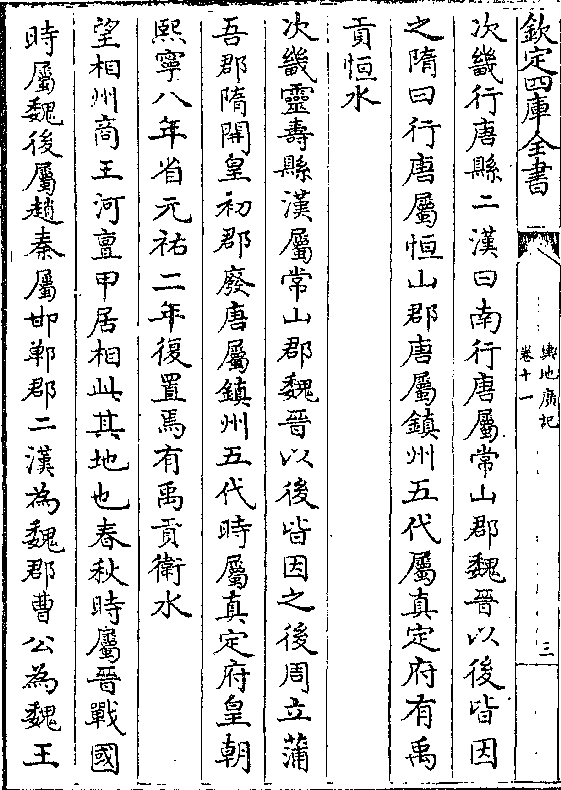 欽定四庫全書
輿地廣記
卷十一
三
次畿行唐縣二漢曰南行唐屬常山郡魏晉以後皆因
之隋曰行唐屬恒山郡唐屬鎮州五代屬真定府有禹
貢恒水
次畿靈壽縣漢屬常山郡魏晉以後皆因之後周立蒲
吾郡隋開皇初郡廢唐屬鎮州五代時屬真定府皇朝
熙寧八年省元祐二年復置焉有禹貢衛水
望相州商王河亶甲居相此其地也春秋時屬晉戰國
時屬魏後屬趙秦屬邯鄲郡二漢為魏郡曹公為魏王